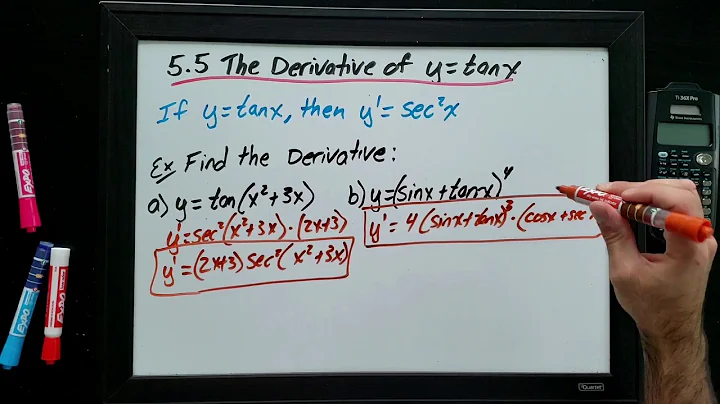 5.5 The Derivative of y=tanx
If y=tanx, then y'=sec²x
Ex Find the Derivative:
a) y=tan(x²+3x)
y'=sec²(x²+3x)·(2x+3)
y'=(2x+3)sec²(x²+3x)
b) y=(sinx+tanx)⁴
y'=4(sinx+tanx)³·(cosx+sec
Quartet
TI-36X Pro
Texas Instruments
EXPO
EXPO
EXPO